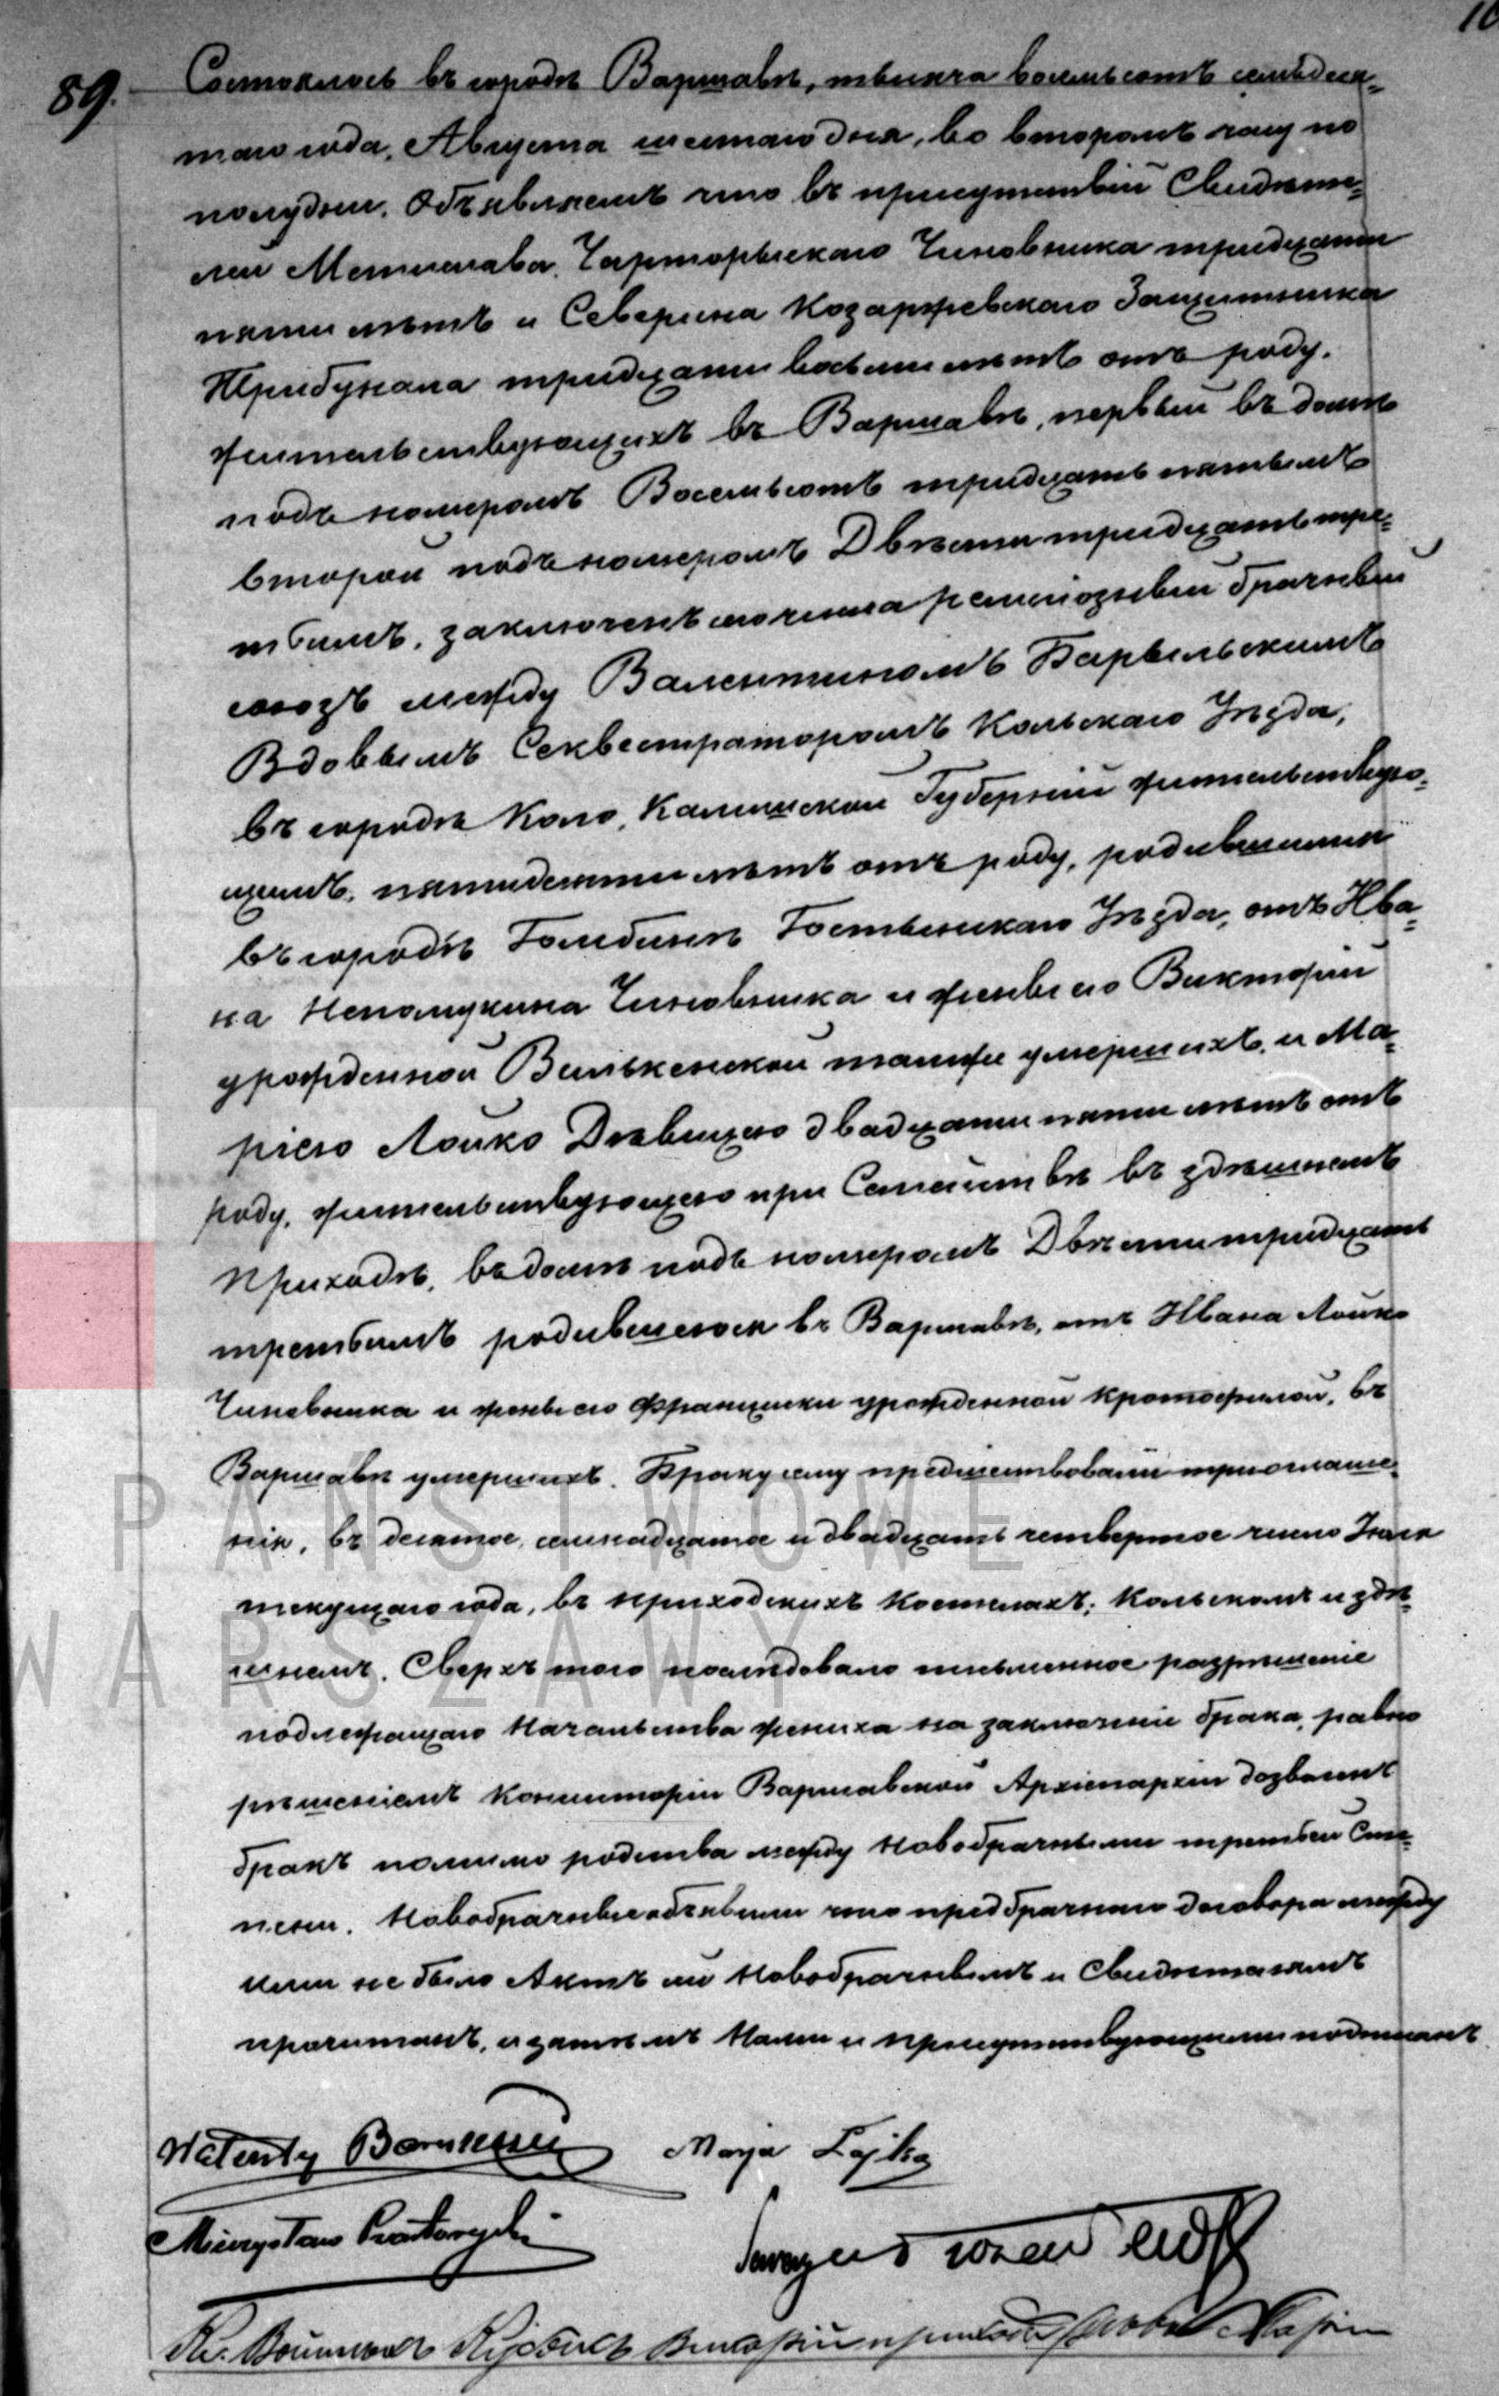 10
89. Состоялось въ городѣ Варшавѣ, тысяча восемьсотъ семьдеся=
таго года, Августа шестаго дня, во второмъ часу по
полудни. Объявляемъ что въ присутствіи Свидѣте=
лей Мечислава Чарторыскаго Чиновника тридцати
пяти лѣтъ и Северина Козаржевскаго Защитника
Трибунала тридцати восьми лѣтъ отъ роду.
жительствующихъ въ Варшавѣ, первый въ домѣ
подъ номеромъ Восемьсотъ тридцать пятымъ
второй подъ номеромъ Двѣсти тридцать тре=
тьимъ, заключенъ сего числа религіозный брачный
союзъ между Валентиномъ
Вдовымъ Секвестраторомъ Кольскаго Уѣзда,
въ городѣ Коло, Калишской Губерніи жительствую=
щимъ, пятидесяти лѣтъ отъ роду, родившимся
въ городѣ Гомбинѣ Гостынскаго Уѣзда, отъ Ива=
на Непомукина Чиновника и жены его Викторіи
урожденной Вильконской тамже умершихъ, и Ма=
ріею Лойко Дѣвицею двадцати пяти лѣтъ отъ
роду, жительствующею при Семействѣ въ здѣшнемъ
Приходѣ, въ домѣ подъ номеромъ Двѣсти тридцать
третьимъ родившеюся въ Варшавѣ, отъ Ивана Лойко
Чиновника и жены его Францишки урожденной Кротофилой, въ
Варшавѣ умершихъ. Браку сему предшествовали три оглаше=
нія, въ десятое, семнадцатое и двадцать четвертое число Іюля
текущаго года, въ приходскихъ Костелахъ: Кольскомъ и здѣ=
шнемъ. Сверхъ того послѣдовало письменное разрѣшеніе
подлежащаго Начальства жениха на заключеніе брака, равно
рѣшеніемъ Консисторіи Варшавской Архіепархіи дозволенъ
бракъ помимо родства между Новобрачными третьей Сте=
пени. Новобрачные объявили что предбрачнаго договора между
ними не было Актъ сей Новобрачнымъ и Свидѣтелямъ
прочитанъ, и затѣмъ Нами и присутствующими подписанъ
Walenty Maryja Łojko
Mieczysław Czartoryski
Кс. Викарій прихода Маріи
PAŃSTWOWE
WARSZAWY